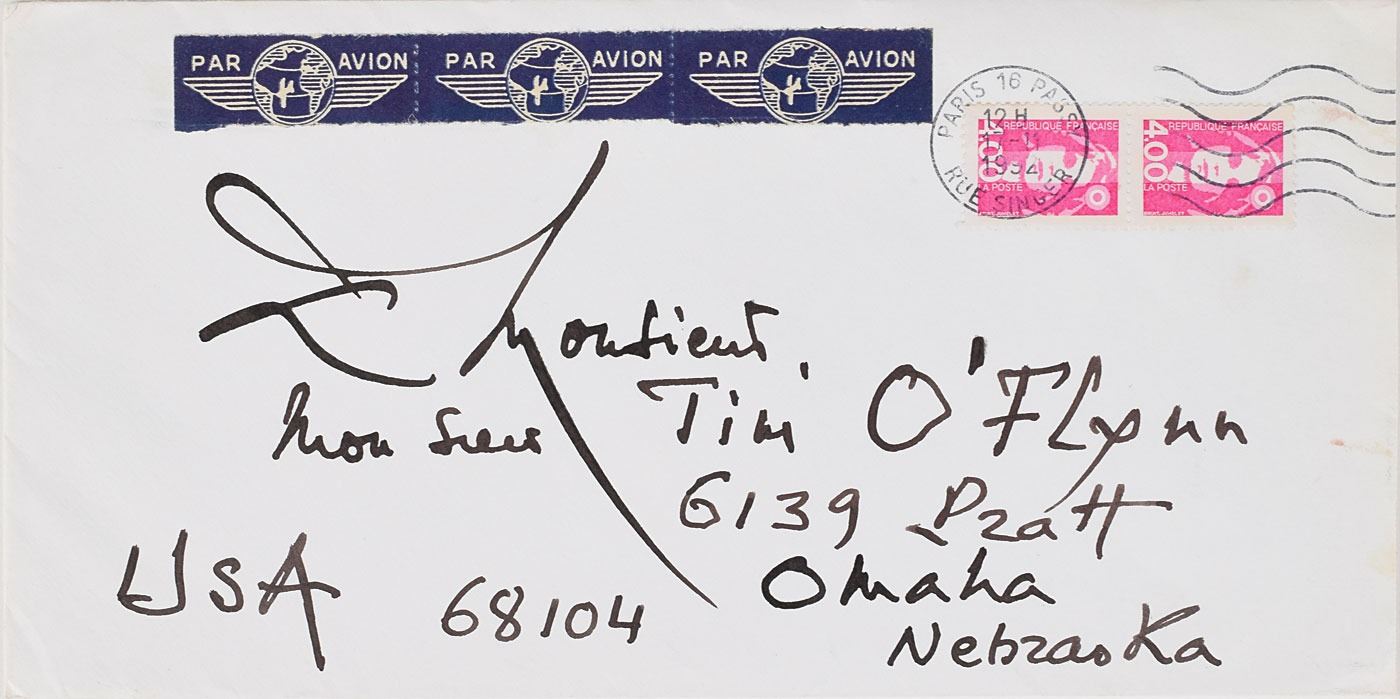 PAR AVION PAR AVION PAR AVION
PARIS 16 PAS
12 H
1994
RUE SINGER
4,00 REPUBLIQUE FRANÇAISE
LA POSTE
4,00 REPUBLIQUE FRANÇAISE
LA POSTE
Monsieur
Monsieur Tim O'Flynn
6139 Pratt
Omaha
USA 68104
Nebraska